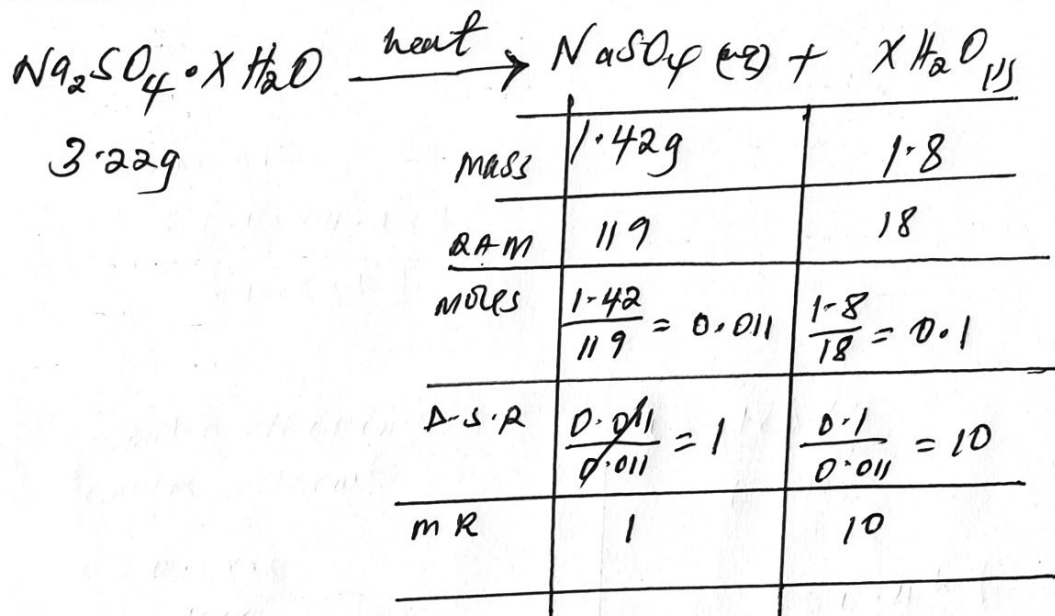 Na₂SO₄•XH₂O heat → NaSO₄ (aq) + XH₂O (l)
3.22g
Mass 1.42g 1.8
RAM 119 18
Moles 1.42/119 = 0.011 1.8/18 = 0.1
D.S.R 0.011/0.011 = 1 0.1/0.011 = 10
MR 1 10